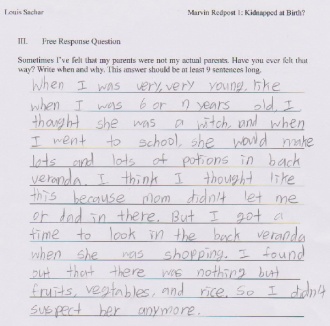 Louis Sachar Marvin Redpost 1: Kidnapped at Birth?
III. Free Response Question
Sometimes I've felt that my parents were not my actual parents. Have you ever felt that
way? Write when and why. This answer should be at least 9 sentences long.
When I was very, very young, like
when I was 6 or 7 years old, I
thought she was a witch, and when
I went to school, she would make
lots and lots of potions in back
veranda. I think I thought like
this because mom didn't let me
or dad in there. But I got a
time to look in the back veranda
when she was shopping. I found
out that there was nothing but
fruits, vegtables, and rice. So I didn't
suspect her anymore.